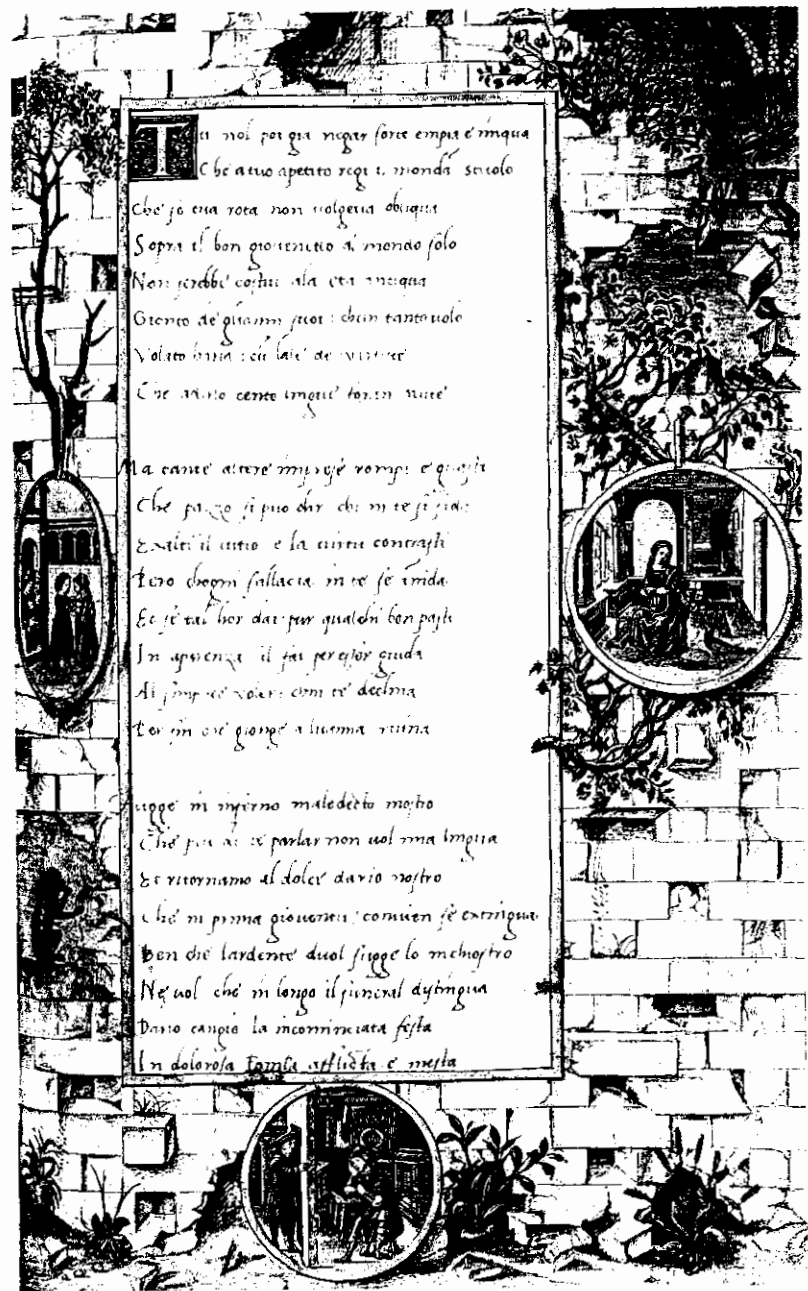 Tu nol poi gia negar sorte empia e iniqua
Che a tuo apetito regi il mondā stuolo
Che se tua rota non volgeua obliqua
Sopra il bon giouenetto al mondo solo
Non serebbe costui ala eta antiqua
Gionto de gliānni suoi: che in tanto uolo
Volato hauia: cū lale de virtute
Che cento lingue
Ma tante altere imprese rompi e guasti
Che pazzo si puo dir chi in te si fida
Exalti il uitio e la uirtu contrasti
Pero chogni fallacia in te se anida
Et se tal hor dai pur qualchi bon pasti
In aparenza il fai per esser guida
Al simplice voler: chin te declina
Per fin che gionge a lultima ruina
Fugge in inferno maledecto mostro
Che piu di te parlar non uol mia lingua
Et ritornamo al dolce dario nostro
Che in prima giouentu: conuien se extingua
Ben che lardente duol sugge lo inchiostro
Ne uol che in longo il funeral distingua
Dario cangio la incominciata festa
In dolorosa tomba afflicta e mesta